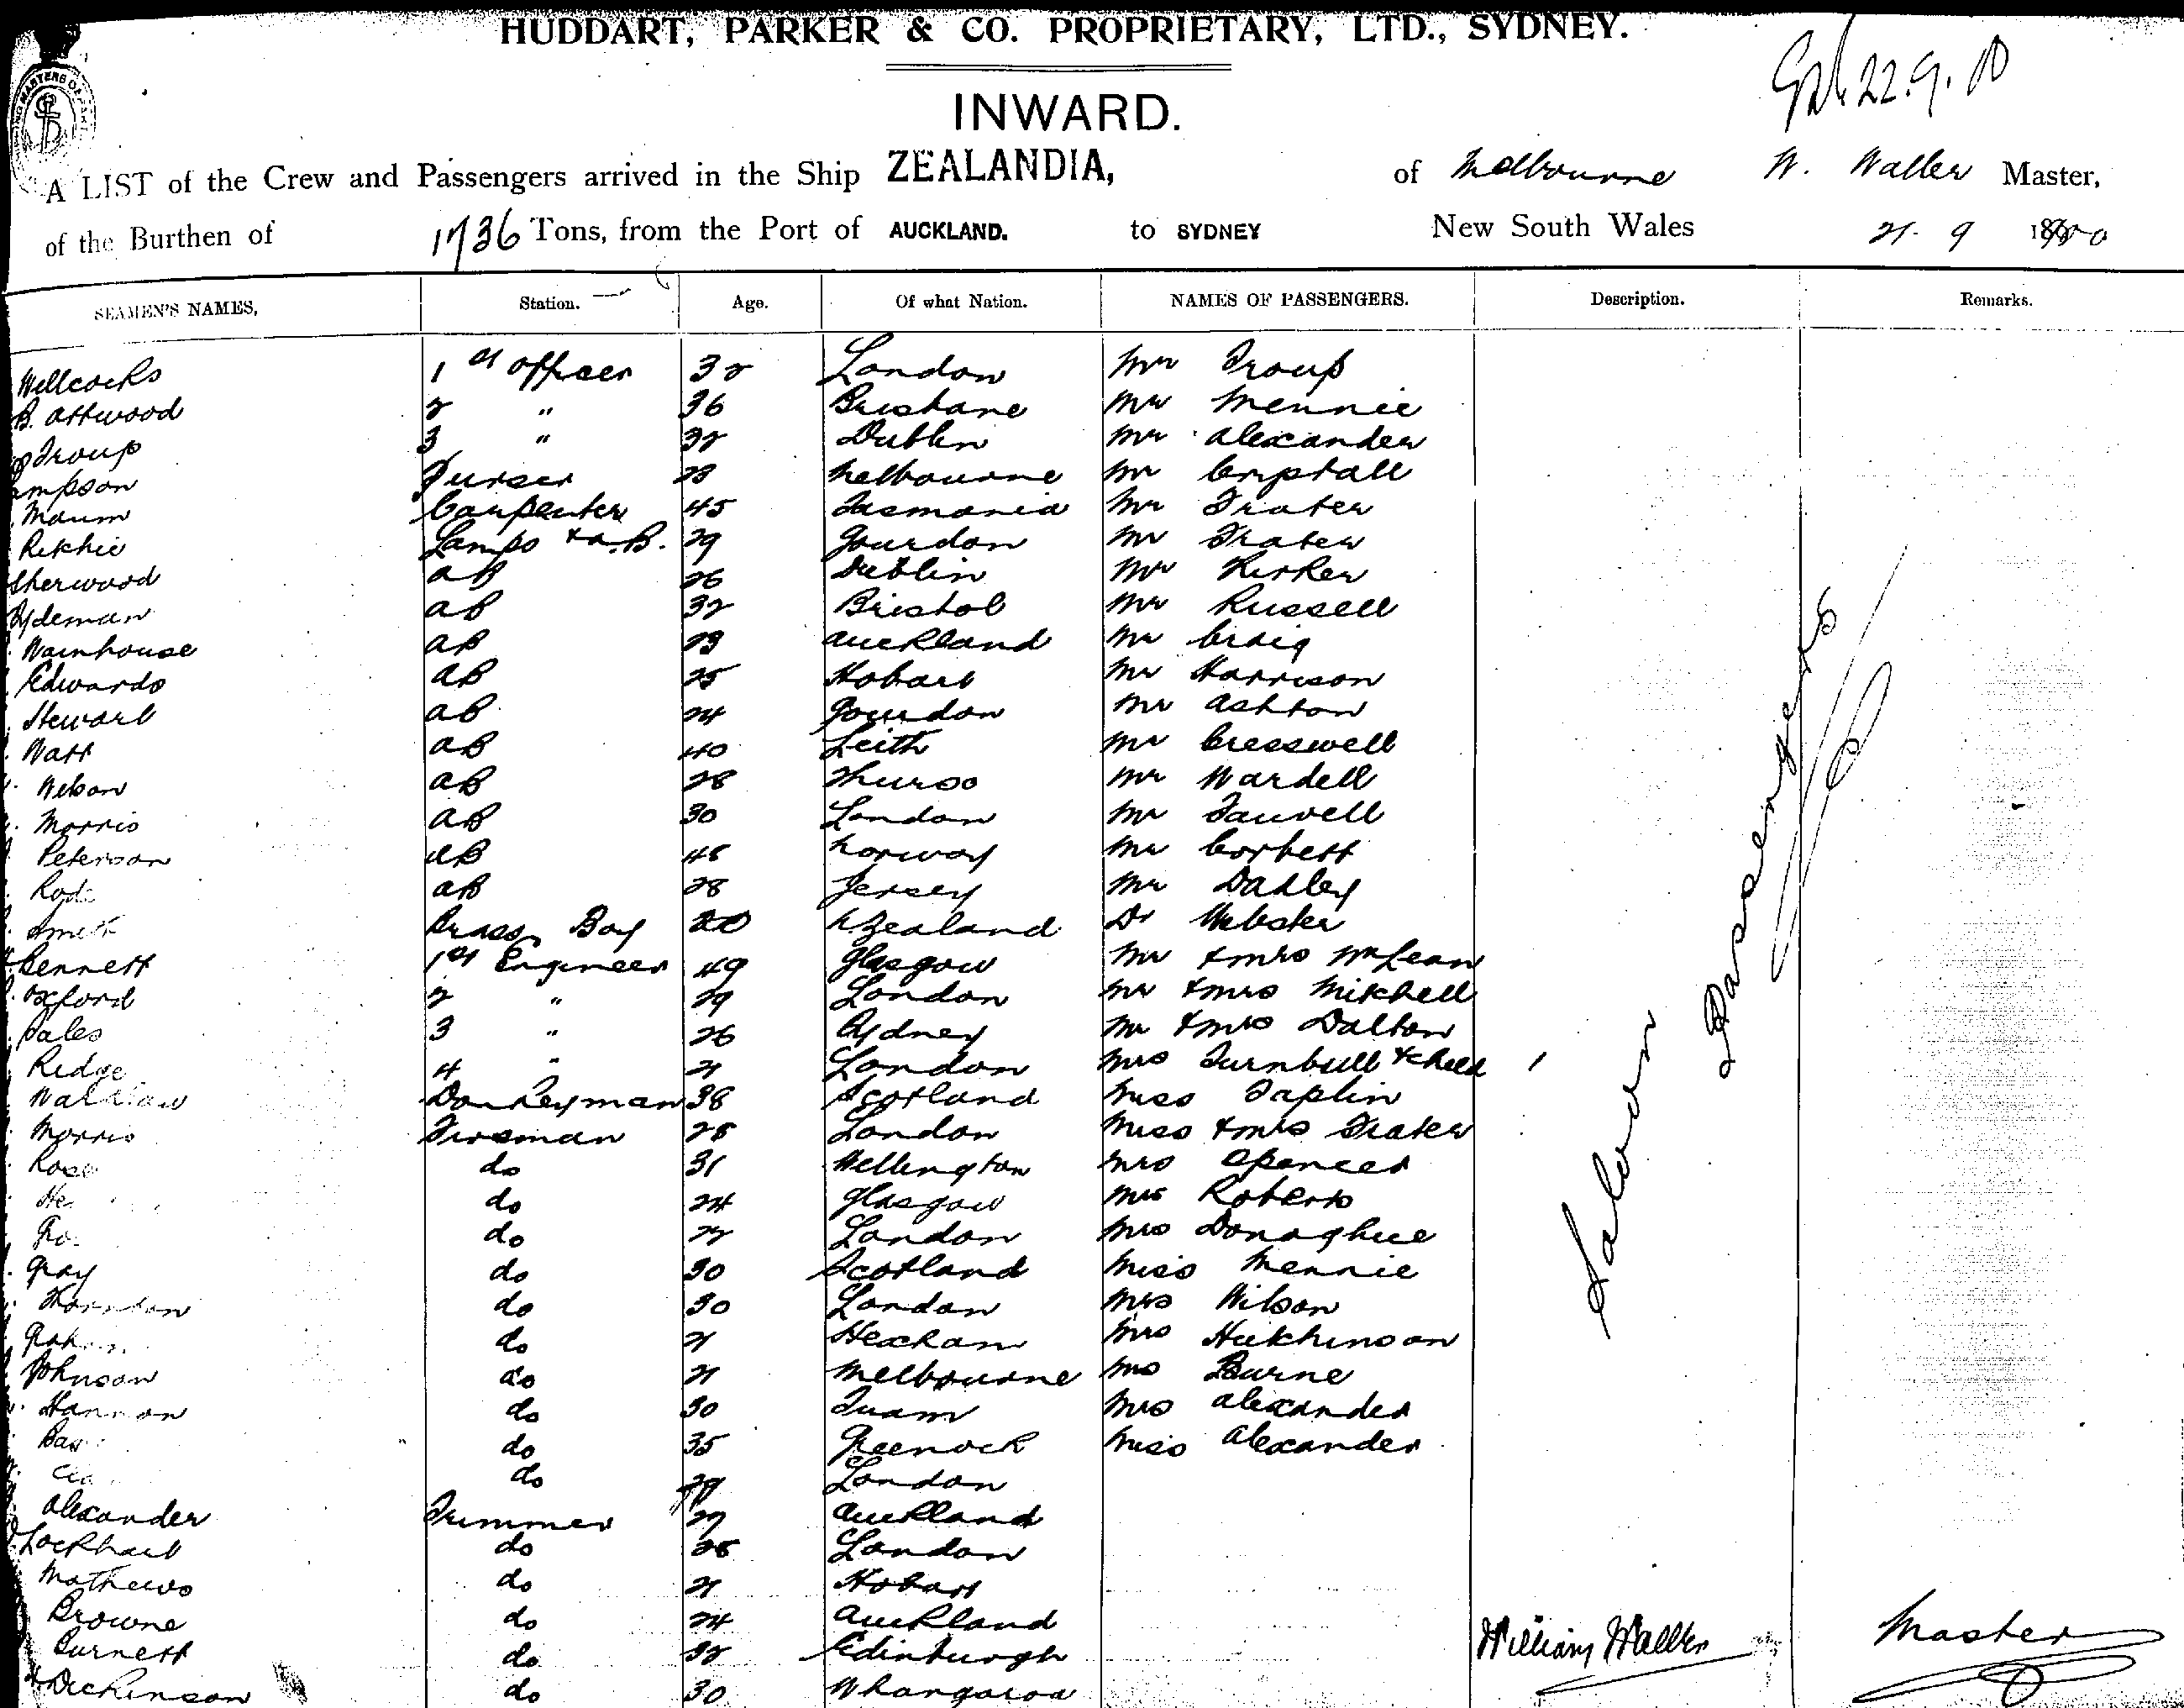 HUDDART, PARKER & CO. PROPRIETARY, LTD., SYDNEY.
22.9.00
INWARD.
A LIST of the Crew and Passengers arrived in the Ship ZEALANDIA, of Melbourne W. Waller Master,
of the Burthen of 1736 Tons, from the Port of AUCKLAND. to SYDNEY New South Wales 21. 9 1900
SEAMEN'S NAMES, Station. Age. Of what Nation. NAMES OF PASSENGERS. Description. Remarks.
Willcocks 1st Officer 32 London Mr Troup
B. Attwood 2 " 36 Brisbane Mr Mennie
Troup 3 " 32 Dublin Mr Alexander
mpson Purser 28 Melbourne Mr
Maum Carpenter 45 Tasmania Mr Frater
Ritchie Lamps & A.B. 29 Gourdon Mr Frater
Sherwood AB 26 Dublin Mr Kirker
AB 32 Bristol Mr Russell
Wainhouse AB 23 Auckland Mr Craig
Edwards AB 25 Hobart Mr Harrison
Stewart AB 24 Gourdon Mr Ashton
Watt AB 40 Leith Mr Cresswell
Nelson AB 28 Thurso Mr Wardell
Morris AB 30 London Mr Fauvell
Peterson AB 45 Norway Mr Corbett
AB 28 Jersey Mr Dadley
Smith Brass Boy 20 N Zealand Dr Webster
Bennett 1st Engineer 49 Glasgow Mr & Mrs McLean
Oxford 2 " 29 London Mr & Mrs Mitchell
Sales 3 " 26 Sydney Mr & Mrs Dalton
Ridge 4 " 21 London Mrs Turnbull & child 1
Donkeyman 38 Scotland Miss Taplin
Morris Fireman 28 London Miss & Mrs Frater
Rose do 31 Wellington Mrs Spencer
do 24 Glasgow Mrs Roberts
do 22 London Mrs Donaghue
Gray do 30 Scotland Miss Mennie
Thornton do 30 London Mrs Wilson
do 21 Hexham Mrs Hutchinson
Johnson do 21 Melbourne Mrs Burne
Hannon do 30 Tuam Mrs Alexander
do 35 Greenock Miss Alexander
do 29 London
Alexander Trimmer 27 Auckland
Lockhart do 25 London
Mathews do 21 Hobart
Browne do 24 Auckland
Burnett do 32 Edinburgh
Dickinson do 30 Whangaroa
Saloon Passengers
William Waller Master